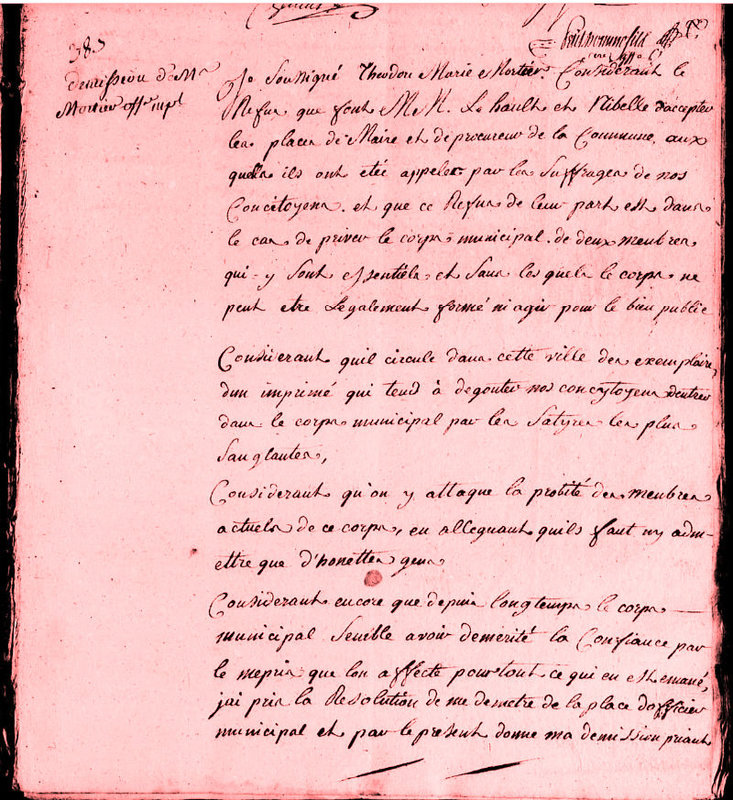 383
demission de Mr
Mortier offr mpl
Je Soussigné Theodore Marie Mortier Considerant le
Refus que font M M. Le hault et Nibelle d'accepter
les places de Maire et de procureur de la Commune, aux
quells ils ont etée appeler par les Suffrages de nos
Concitoyens. et que ce Refus de leur part est dans
le cas de priver le corps municipal. de deux membres
qui-y Sont essentiels et Sans les quels le corps ne
peut etre Légalement formé ni agir pour le bien public
Considerant quil circule dans cette ville des exemplaires
dun imprimé qui tend à degouter nos concytoyens dentrer
dans le corps municipal par les Satyres les plus
Sanglantes,
Considerant qu'on y attaque la probité des membres
actuels de ce corps, en alleguant quils faut ny adm-
ettre que d'honettes gens
Considerant encore que depuis longtemps le corps
municipal Semble avoir demérité la Confiance par
le mepris que lon affecte pour tout ce qui en est emané,
jai pris la Resolution de me demetre de la place dofficier
municipal et par le present donne ma demission priant